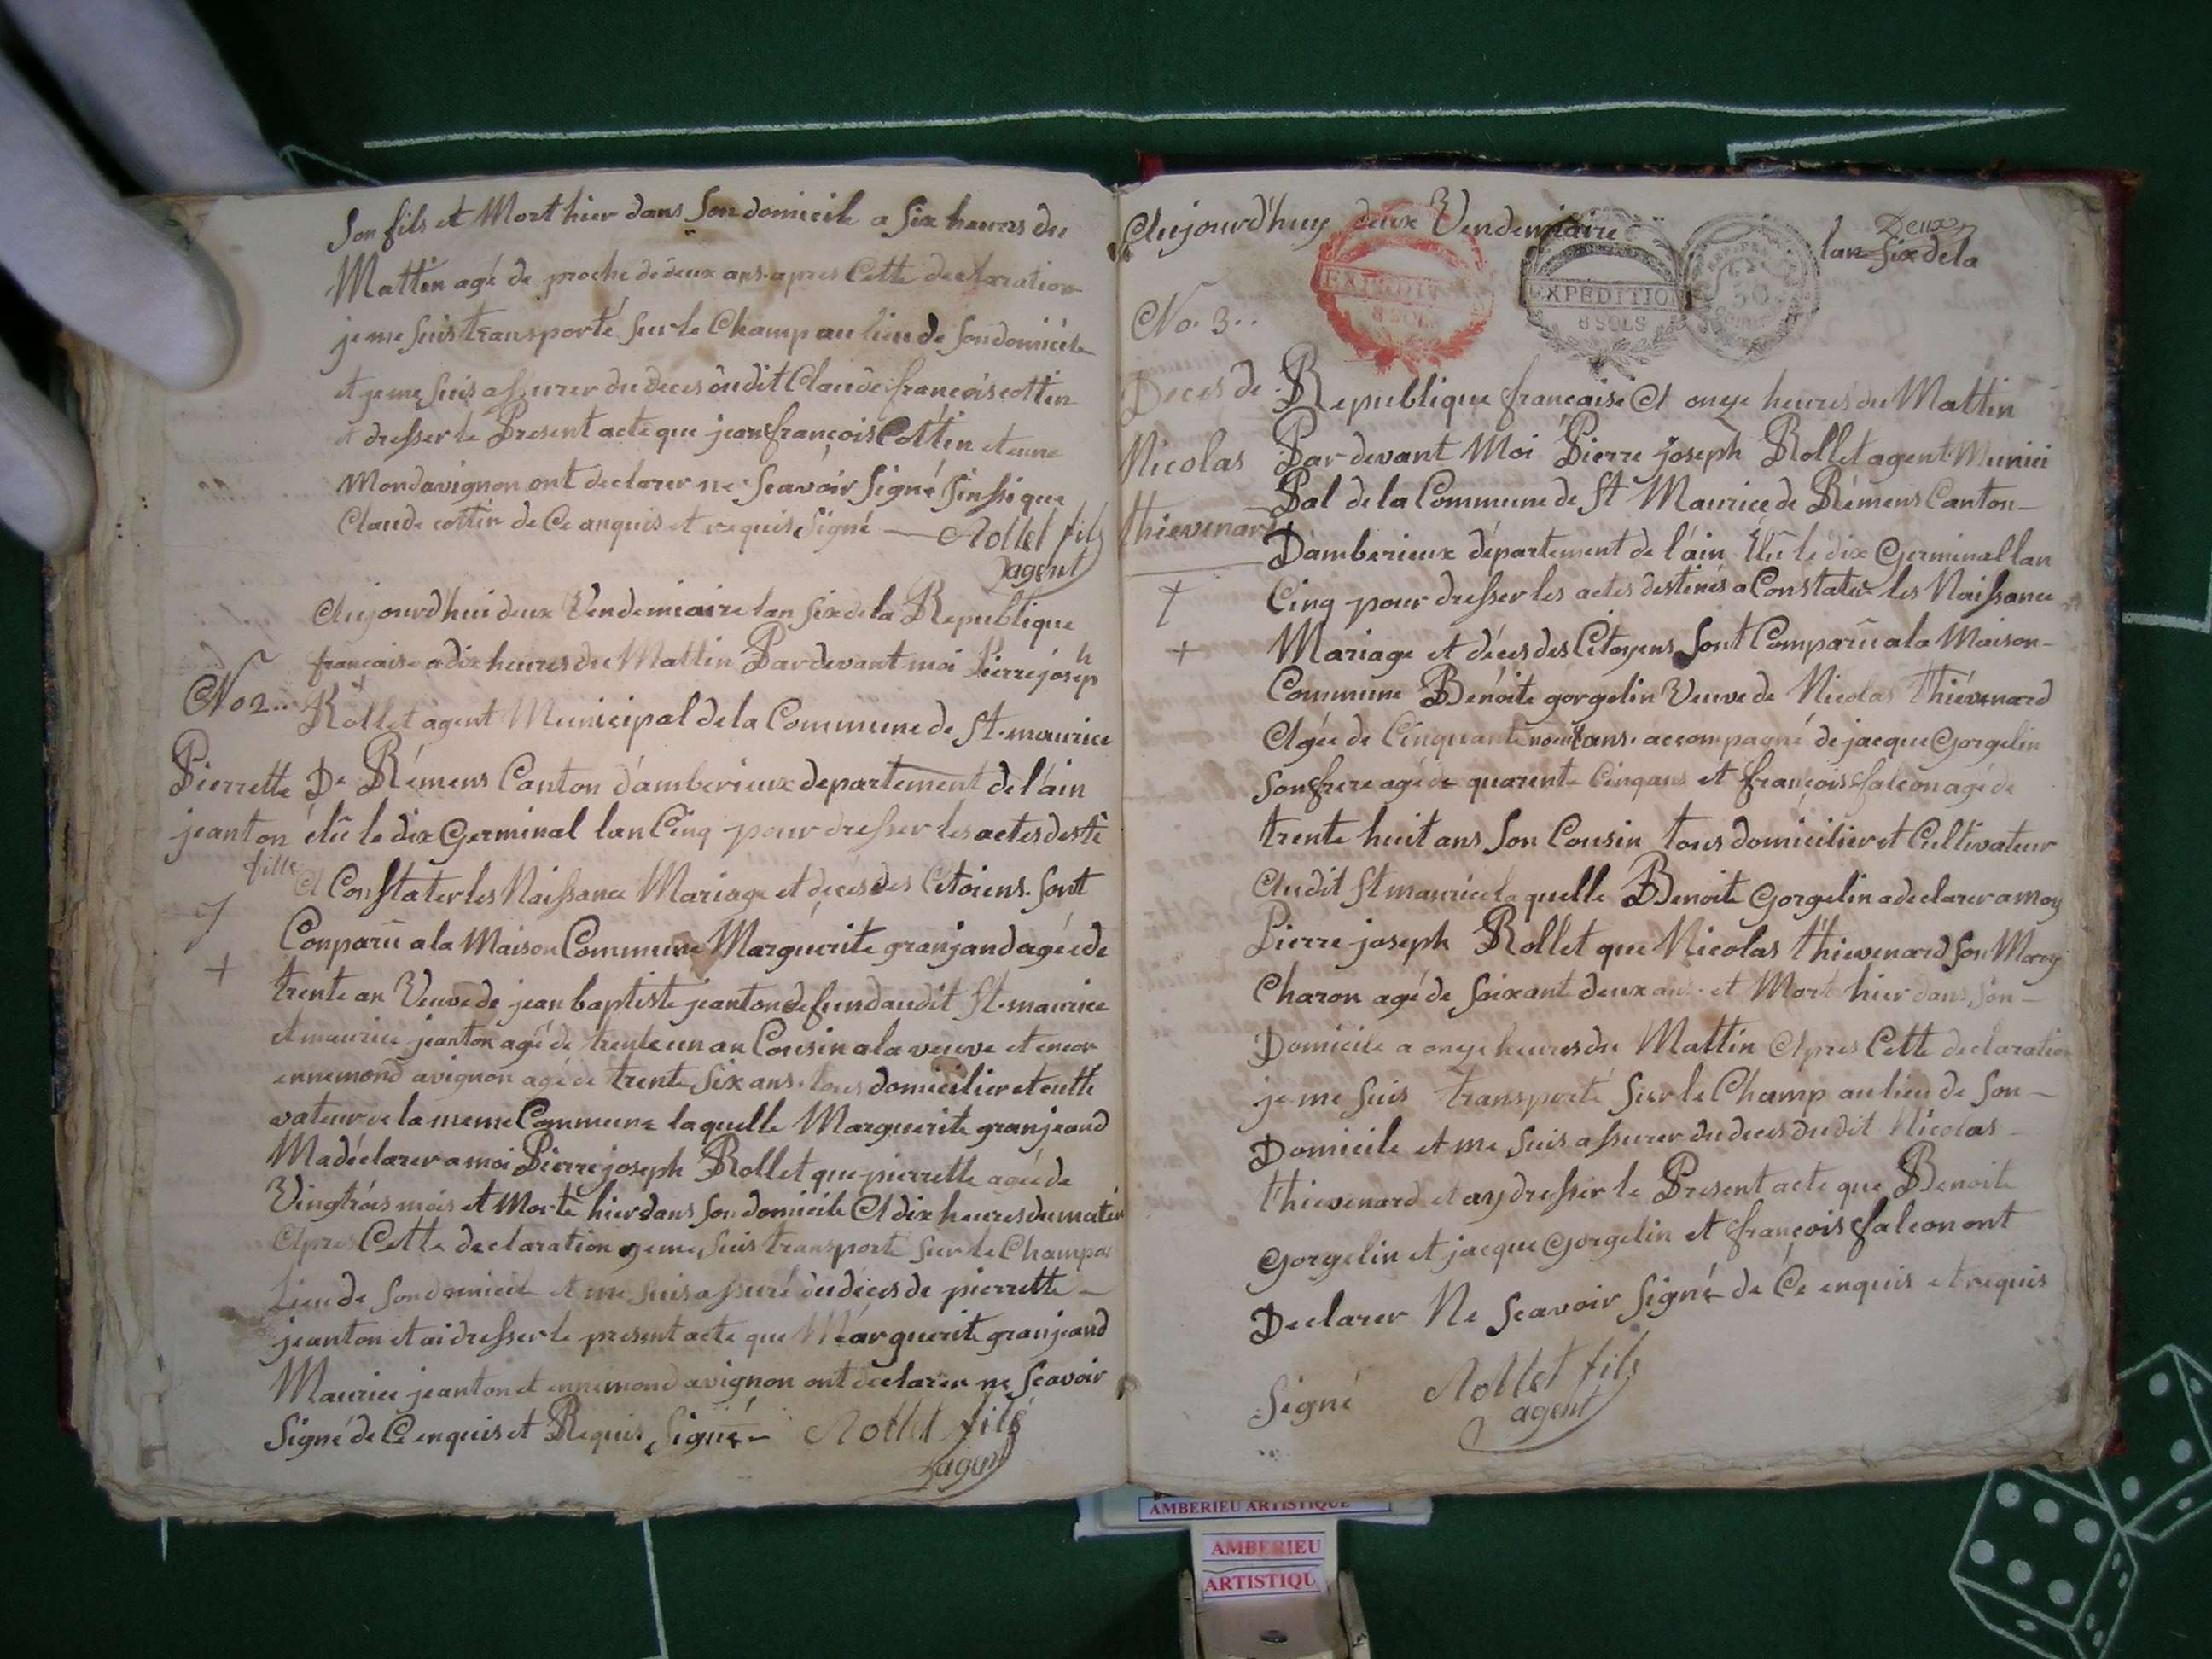 Son fils et Mort hier dans Son domicile a Six heures du
Mattin agé de proche de deux ans. apres Cette declaration
je me suis transporté Sur le Champ au lieu de Son domicile
et je me suis assurer du deces dudit Claude françois cottin
et dresser le Present acte que jean françois Cottin et enne
Mond avignon ont declarer ne Scavoir Signé Sinssi que
Claude cottin de Ce anquis et requis Signé — Rollet fils
agent
Aujourdhui deux Vendemiaire lan Six de la Republique
française a dix heures du Mattin Par devant moi Pierre joseph
No 2.. Rollet agent Municipal de la Commune de St. maurice
Pierrette De Rémens Canton d'amberieux departement de l'ain
jeanton élû le dix Germinal lan Cinq pour dresser les actes desti
fille A Constater les Naissance Mariage et décés des Citoiens. Sont
Conparû a la Maison Commune Marguerite granjand agée de
+ trente an Veuve de jean baptiste jeanton defund audit St. maurice
et maurice jeanton agé de trente un an Cousin a la veuve et encor
ennemond avignon agé de trente Six ans. tous domicilier et cultte
vateur de la meme Commune laquelle Marguerite granjeand
Ma déclarer a moi Pierre joseph Rollet que pierrette agée de
Vingtrois mois et Morte hier dans Son domicile A dix heures du matin
Apres Cette declaration je me suis transporté Sur le Champ au
Lieu de Son domicile et me suis assuré du deces de pierrette —
jeanton et ai dresser le present acte que Marguerit granjeand
Maurice jeanton et ennemond avignon ont declarer ne Scavoir
Signé de Ce enquis et Requis Signé — Rollet fils
agent
Aujourd'huy deux Vendemiaire lan Six de la
Deux
EXPEDITION
8 SOLS
EXPEDITION
8 SOLS
50
No. 3..
Deces de Republique française A onze heures du Mattin
Nicolas Par devant Moi Pierre joseph Rollet agent Munici
Pal de la Commune de St Maurice de Rémens Canton —
thievenard Damberieux département de l'ain Élû le dix Germinal lan
+ Cinq pour dresser les actes destinés a Constater les Naissance
+ Mariage et décés des Citoyens Sont Comparû a la Maison —
Commune Benóite gorgelin Veuve de Nicolas thiévenard
Agée de Cinquante neuf ans. accompagné de jacque Gorgelin
Son frere agé de quarente Cinq ans et françois falcon agé de
trente huit ans Son Cousin tous domicilier et Cultivateur
Audit St maurice laquelle Benoite Gorgelin a declarer a moy
Pierre joseph Rollet que Nicolas thievenard Son Mary
Charon agé de Soixant deux ans. et Mort hier dans Son —
Domicile a onze heures du Mattin Apres Cette declaration
je me suis transporté Sur le Champ au lieu de Son —
Domicile et me suis assurer du deces dudit Nicolas —
thievenard et ay dresser le Present acte que Benoite
Gorgelin et jacque Gorgelin et françois falcon ont
Declarer Ne Scavoir Signé de Ce enquis et requis
Signé Rollet fils
agent
AMBERIEU ARTISTIQUE
AMBERIEU
ARTISTIQU